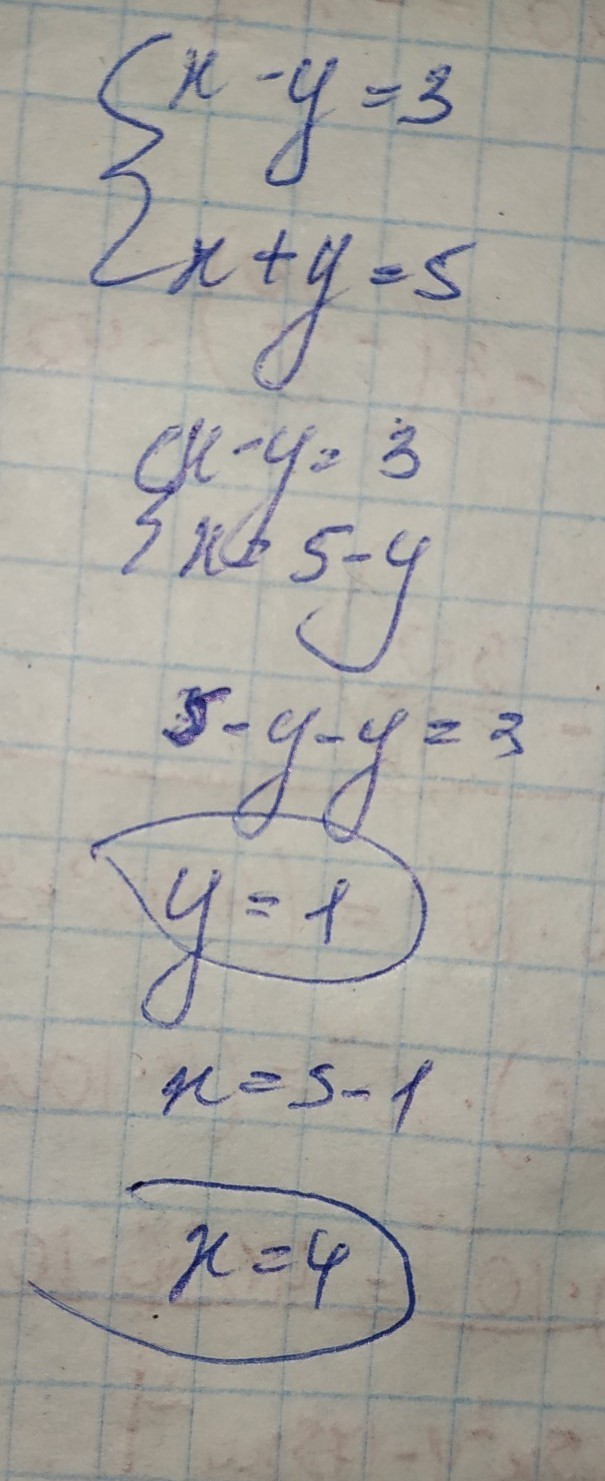 x - y = 3
x + y = 5
x - y = 3
x = 5 - y
5 - y - y = 3
y = 1
x = 5 - 1
x = 4